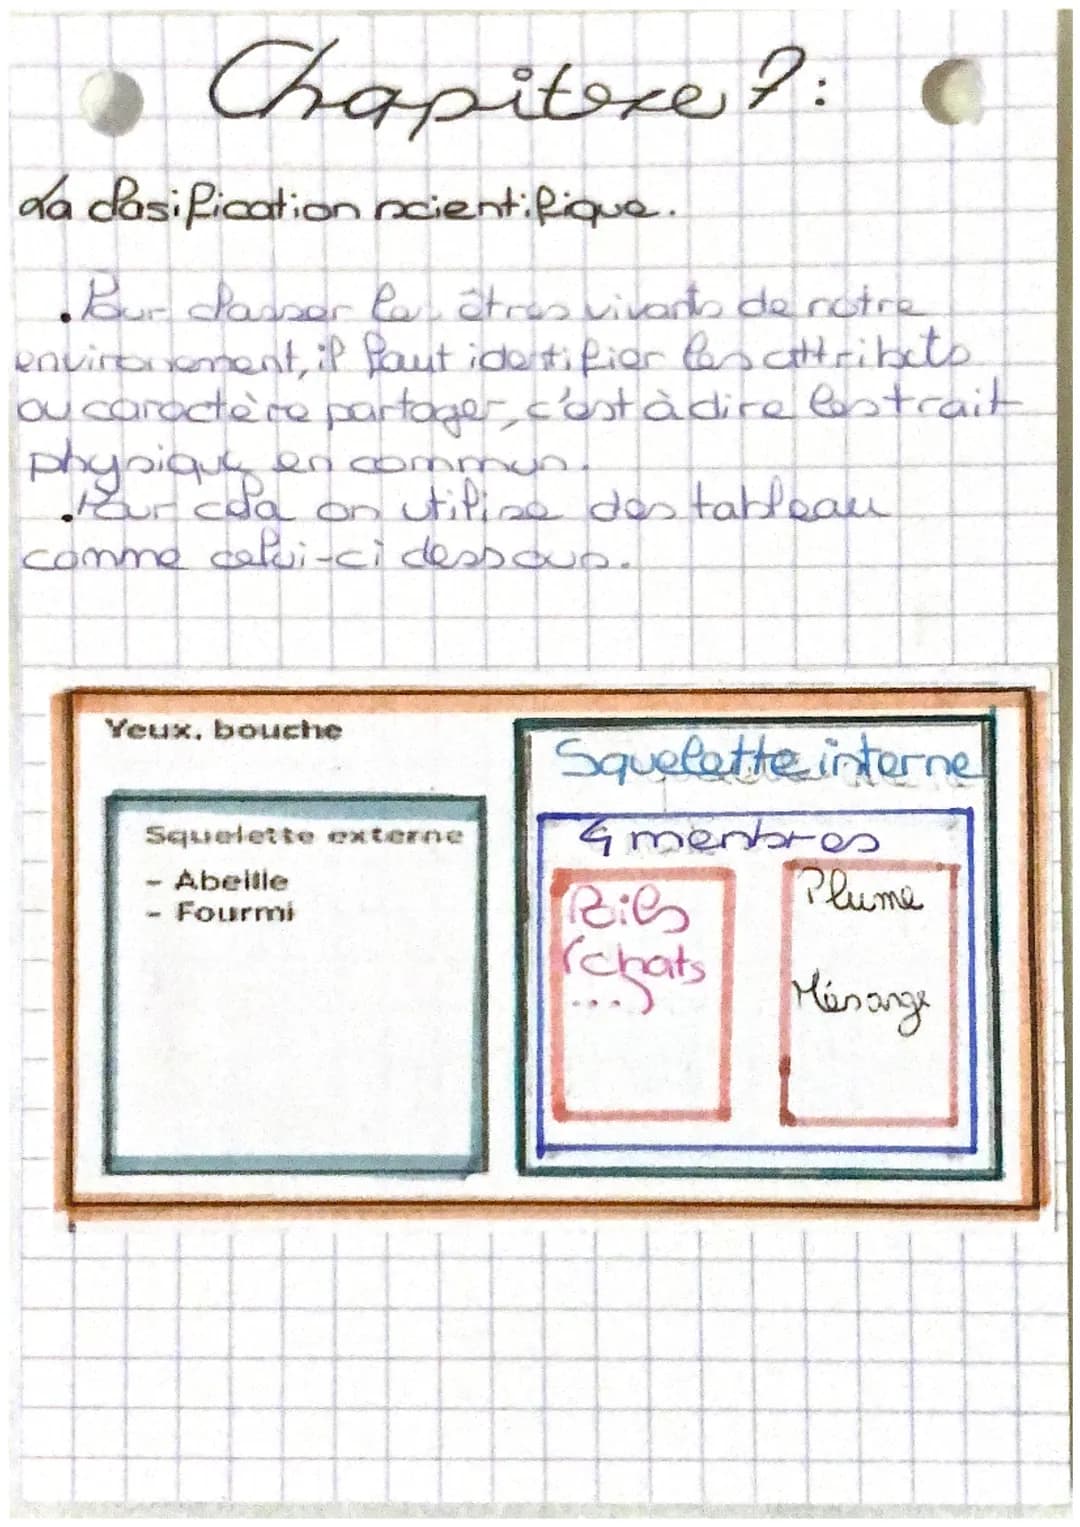 Chapitre 7:
La clasification scientifique.
. Pour classer les êtres vivants de notre
environement, il faut identifier les attributs
ou caractère partager, c'est à dire les trait
physique en commun.
. Pour cela on utilise des tableau
comme celui-ci dessous.
Yeux, bouche
Squelette externe
- Abeille
- Fourmi
Squelette interne
4 menbres
Poils
(chats
...)
Plume
Mésange